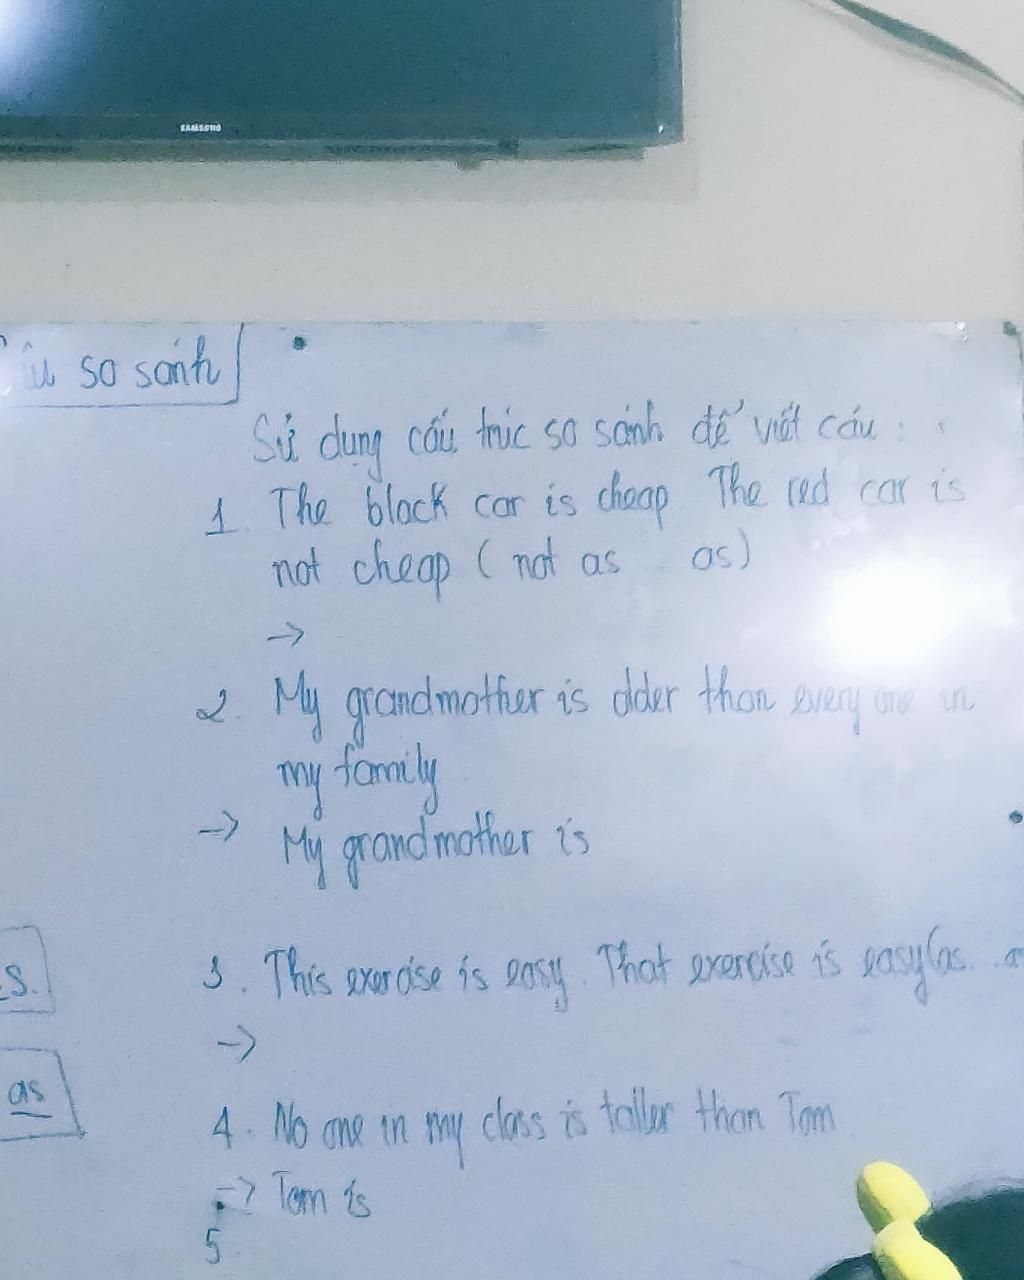 SAMSUNG
so sánh
Sử dụng cấu trúc so sánh để viết câu :
1. The black car is cheap The red car is
not cheap ( not as as)
→
2. My grandmother is older than every one in
my family
→ My grandmother is
3. This exercise is easy. That exercise is easy(as...
s.
→
as
4. No one in my class is taller than Tom
→ Tom is
5